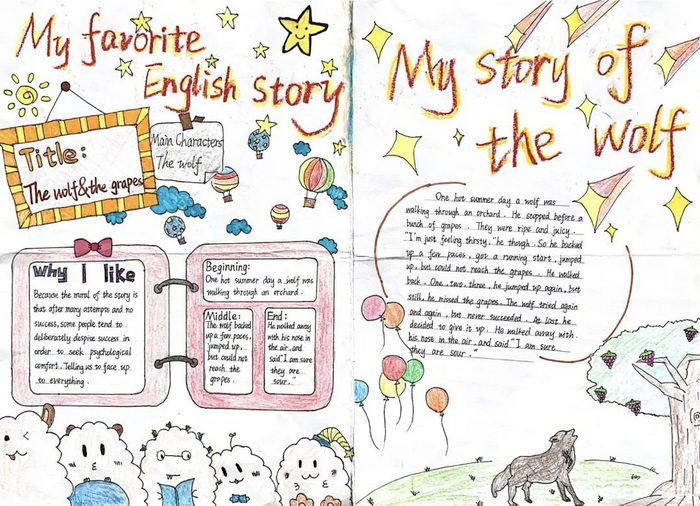 My favorite
English story
Title:
The wolf & the grapes
Main Characters
The wolf
Why I like
Because the moral of the story is
that after many attempts and no
success, some people tend to
deliberately despise success in
order to seek psychological
comfort. Telling us to face up
to everything.
Beginning:
One hot summer day a wolf was
walking through an orchard.
Middle:
The wolf backed
up a few paces,
jumped up,
but could not
reach the
grapes.
End:
He walked away
with his nose in
the air, and
said "I am sure
they are
sour.
My story of
the wolf
One hot summer day a wolf was
walking through an orchard. He stopped before a
bunch of grapes. They were ripe and juicy.
"I'm just feeling thirsty," he though. So he backed
up a few paces, got a running start, jumped
up, but could not reach the grapes. He walked
back. One, two, three, he jumped up again, but
still, he missed the grapes. The wolf tried again
and again, but never succeeded. At last he
decided to give it up. He walked away with
his nose in the air, and said "I am sure
they are sour."